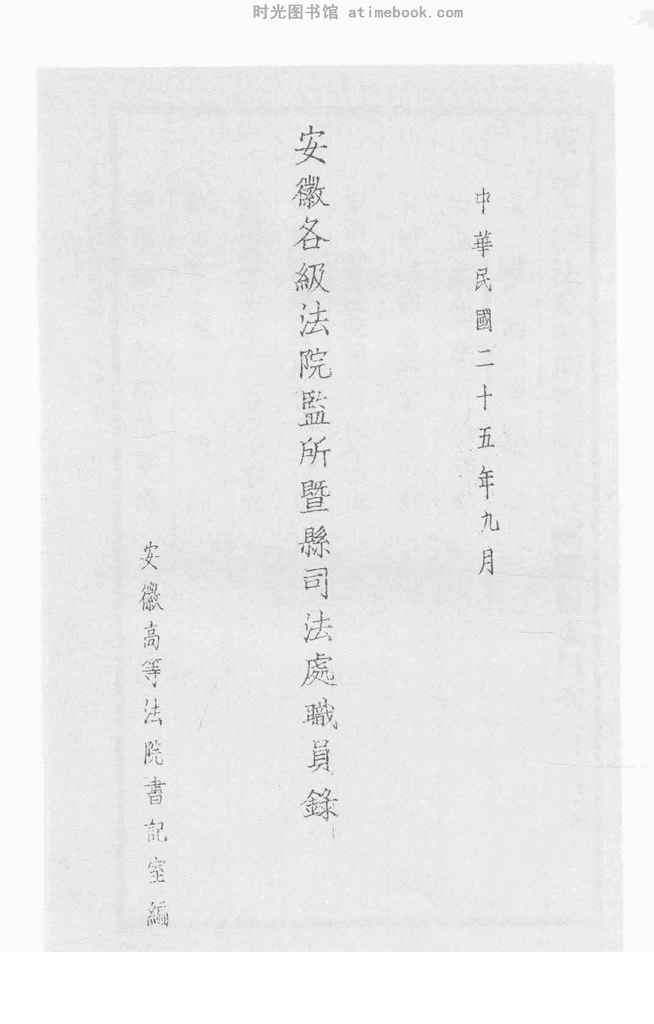 时光图书馆 atimebook.com
中華民國二十五年九月
安徽各級法院監所暨縣司法處職員錄
安徽高等法院書記室編